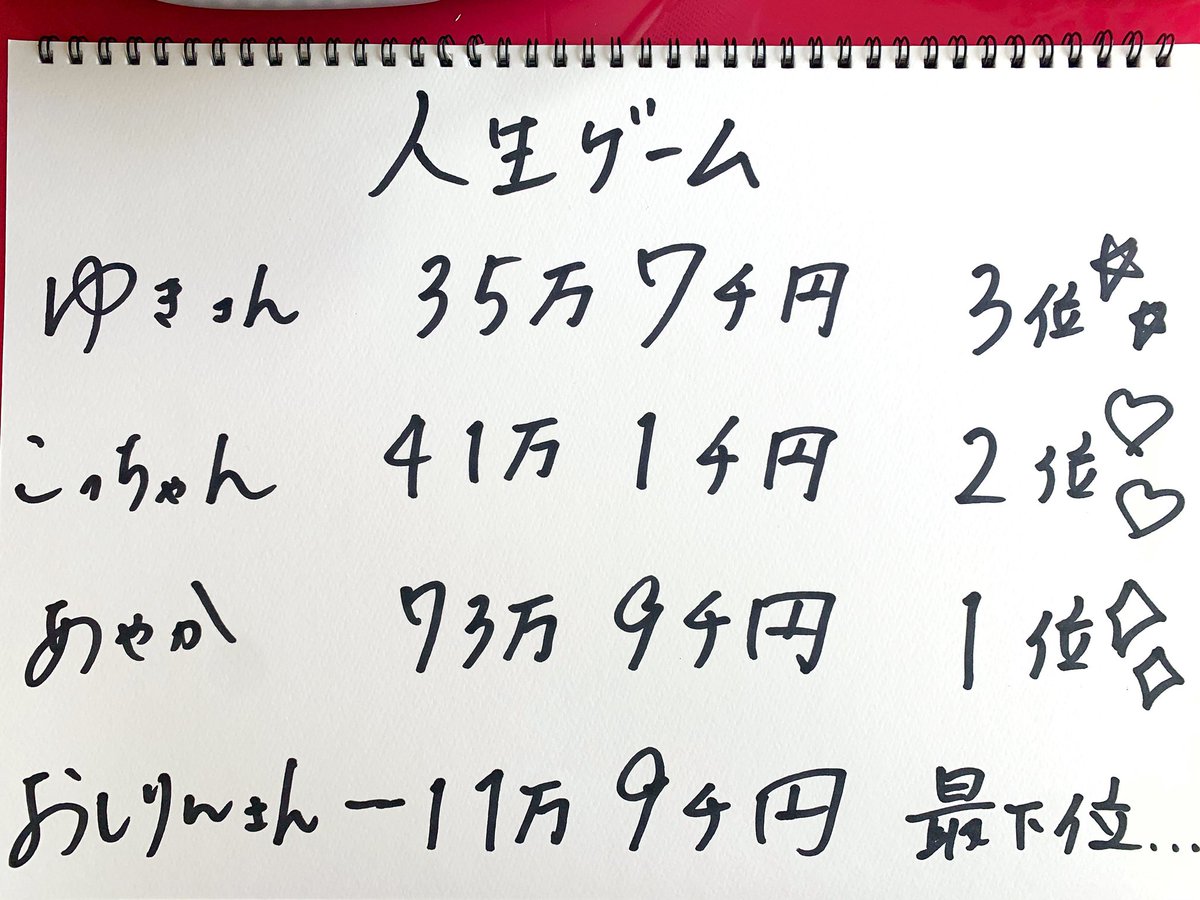 人生ゲーム
35万 7千円 3位
こっちゃん 41万 1千円 2位
あやか 73万 9千円 1位
おしりんさん -11万 9千円 最下位...